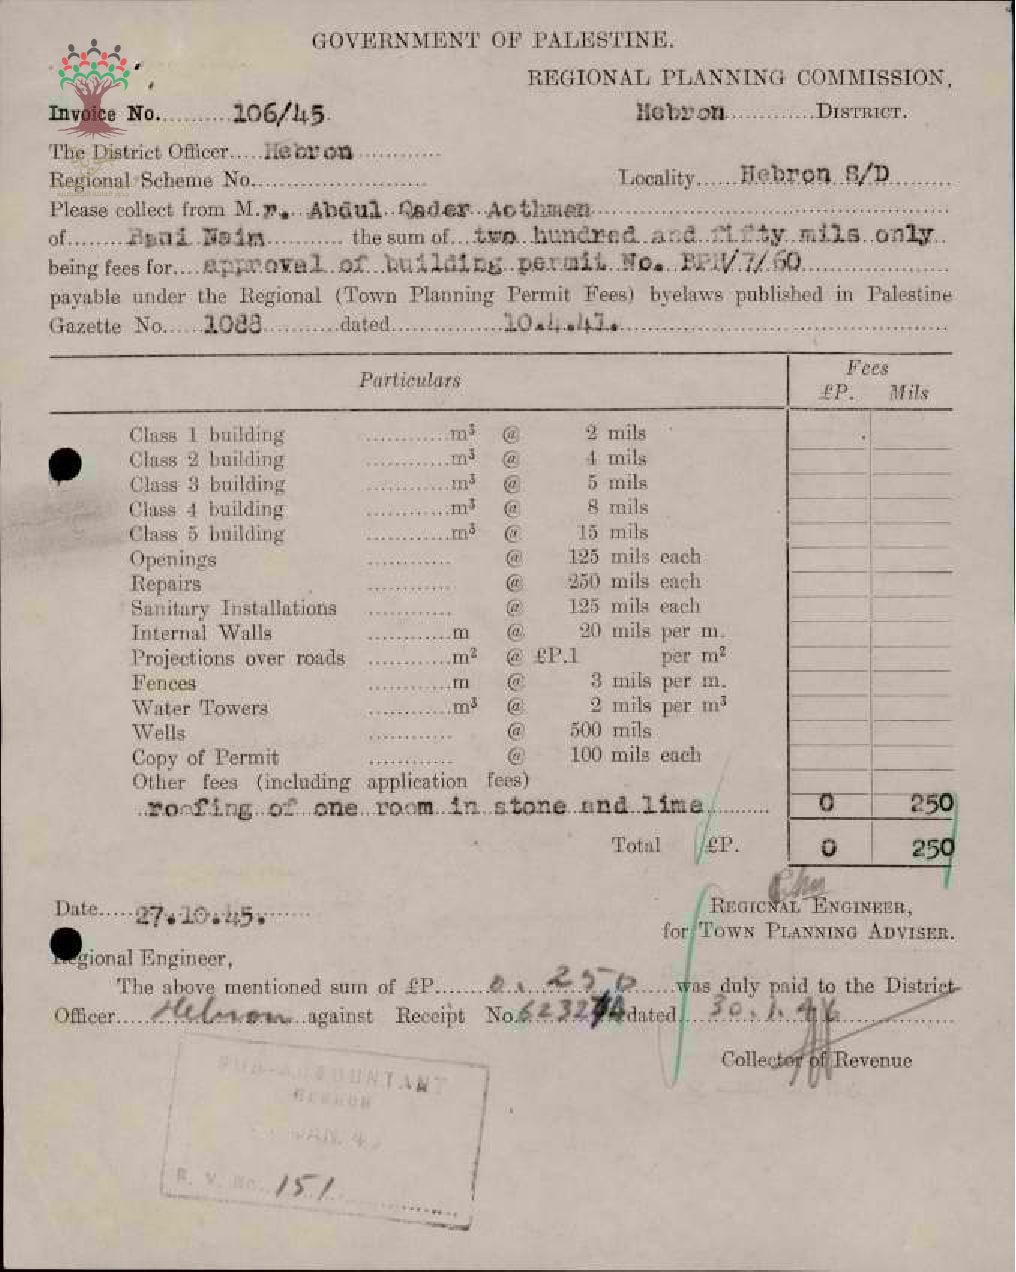 GOVERNMENT OF PALESTINE.
REGIONAL PLANNING COMMISSION,
Invoice No..........106/45.
Hebron.............DISTRICT.
The District Officer.....Hebron............
Regional Scheme No...........................
Locality......Hebron S/D.........
Please collect from M.r. Abdul Qader Aothman
of........Bani Naim............ the sum of...two hundred and fifty mils only..
being fees for....approval of building permit No. /7/60
payable under the Regional (Town Planning Permit Fees) byelaws published in Palestine
Gazette No......1088.............dated................10.4.41.
Particulars
Fees
£P. Mils
Class 1 building ............m³ @ 2 mils
Class 2 building ............m³ @ 4 mils
Class 3 building ............m³ @ 5 mils
Class 4 building ............m³ @ 8 mils
Class 5 building ............m³ @ 15 mils
Openings ............ @ 125 mils each
Repairs ............ @ 250 mils each
Sanitary Installations ............ @ 125 mils each
Internal Walls ............m @ 20 mils per m.
Projections over roads ............m² @ £P.1 per m²
Fences ............m @ 3 mils per m.
Water Towers ............m³ @ 2 mils per m³
Wells ............ @ 500 mils
Copy of Permit ............ @ 100 mils each
Other fees (including application fees)
..roofing of one room in stone and lime.......... 0 250
Total £P. 0 250
Date.....27.10.45.
REGIONAL ENGINEER,
for TOWN PLANNING ADVISER.
Regional Engineer,
The above mentioned sum of £P........0.250......was duly paid to the District
Officer.....Hebron...against Receipt No. dated 30.1.46
Collector of Revenue
SUB-ACCOUNTANT
HEBRON
JAN. 4
R. V. No. 151